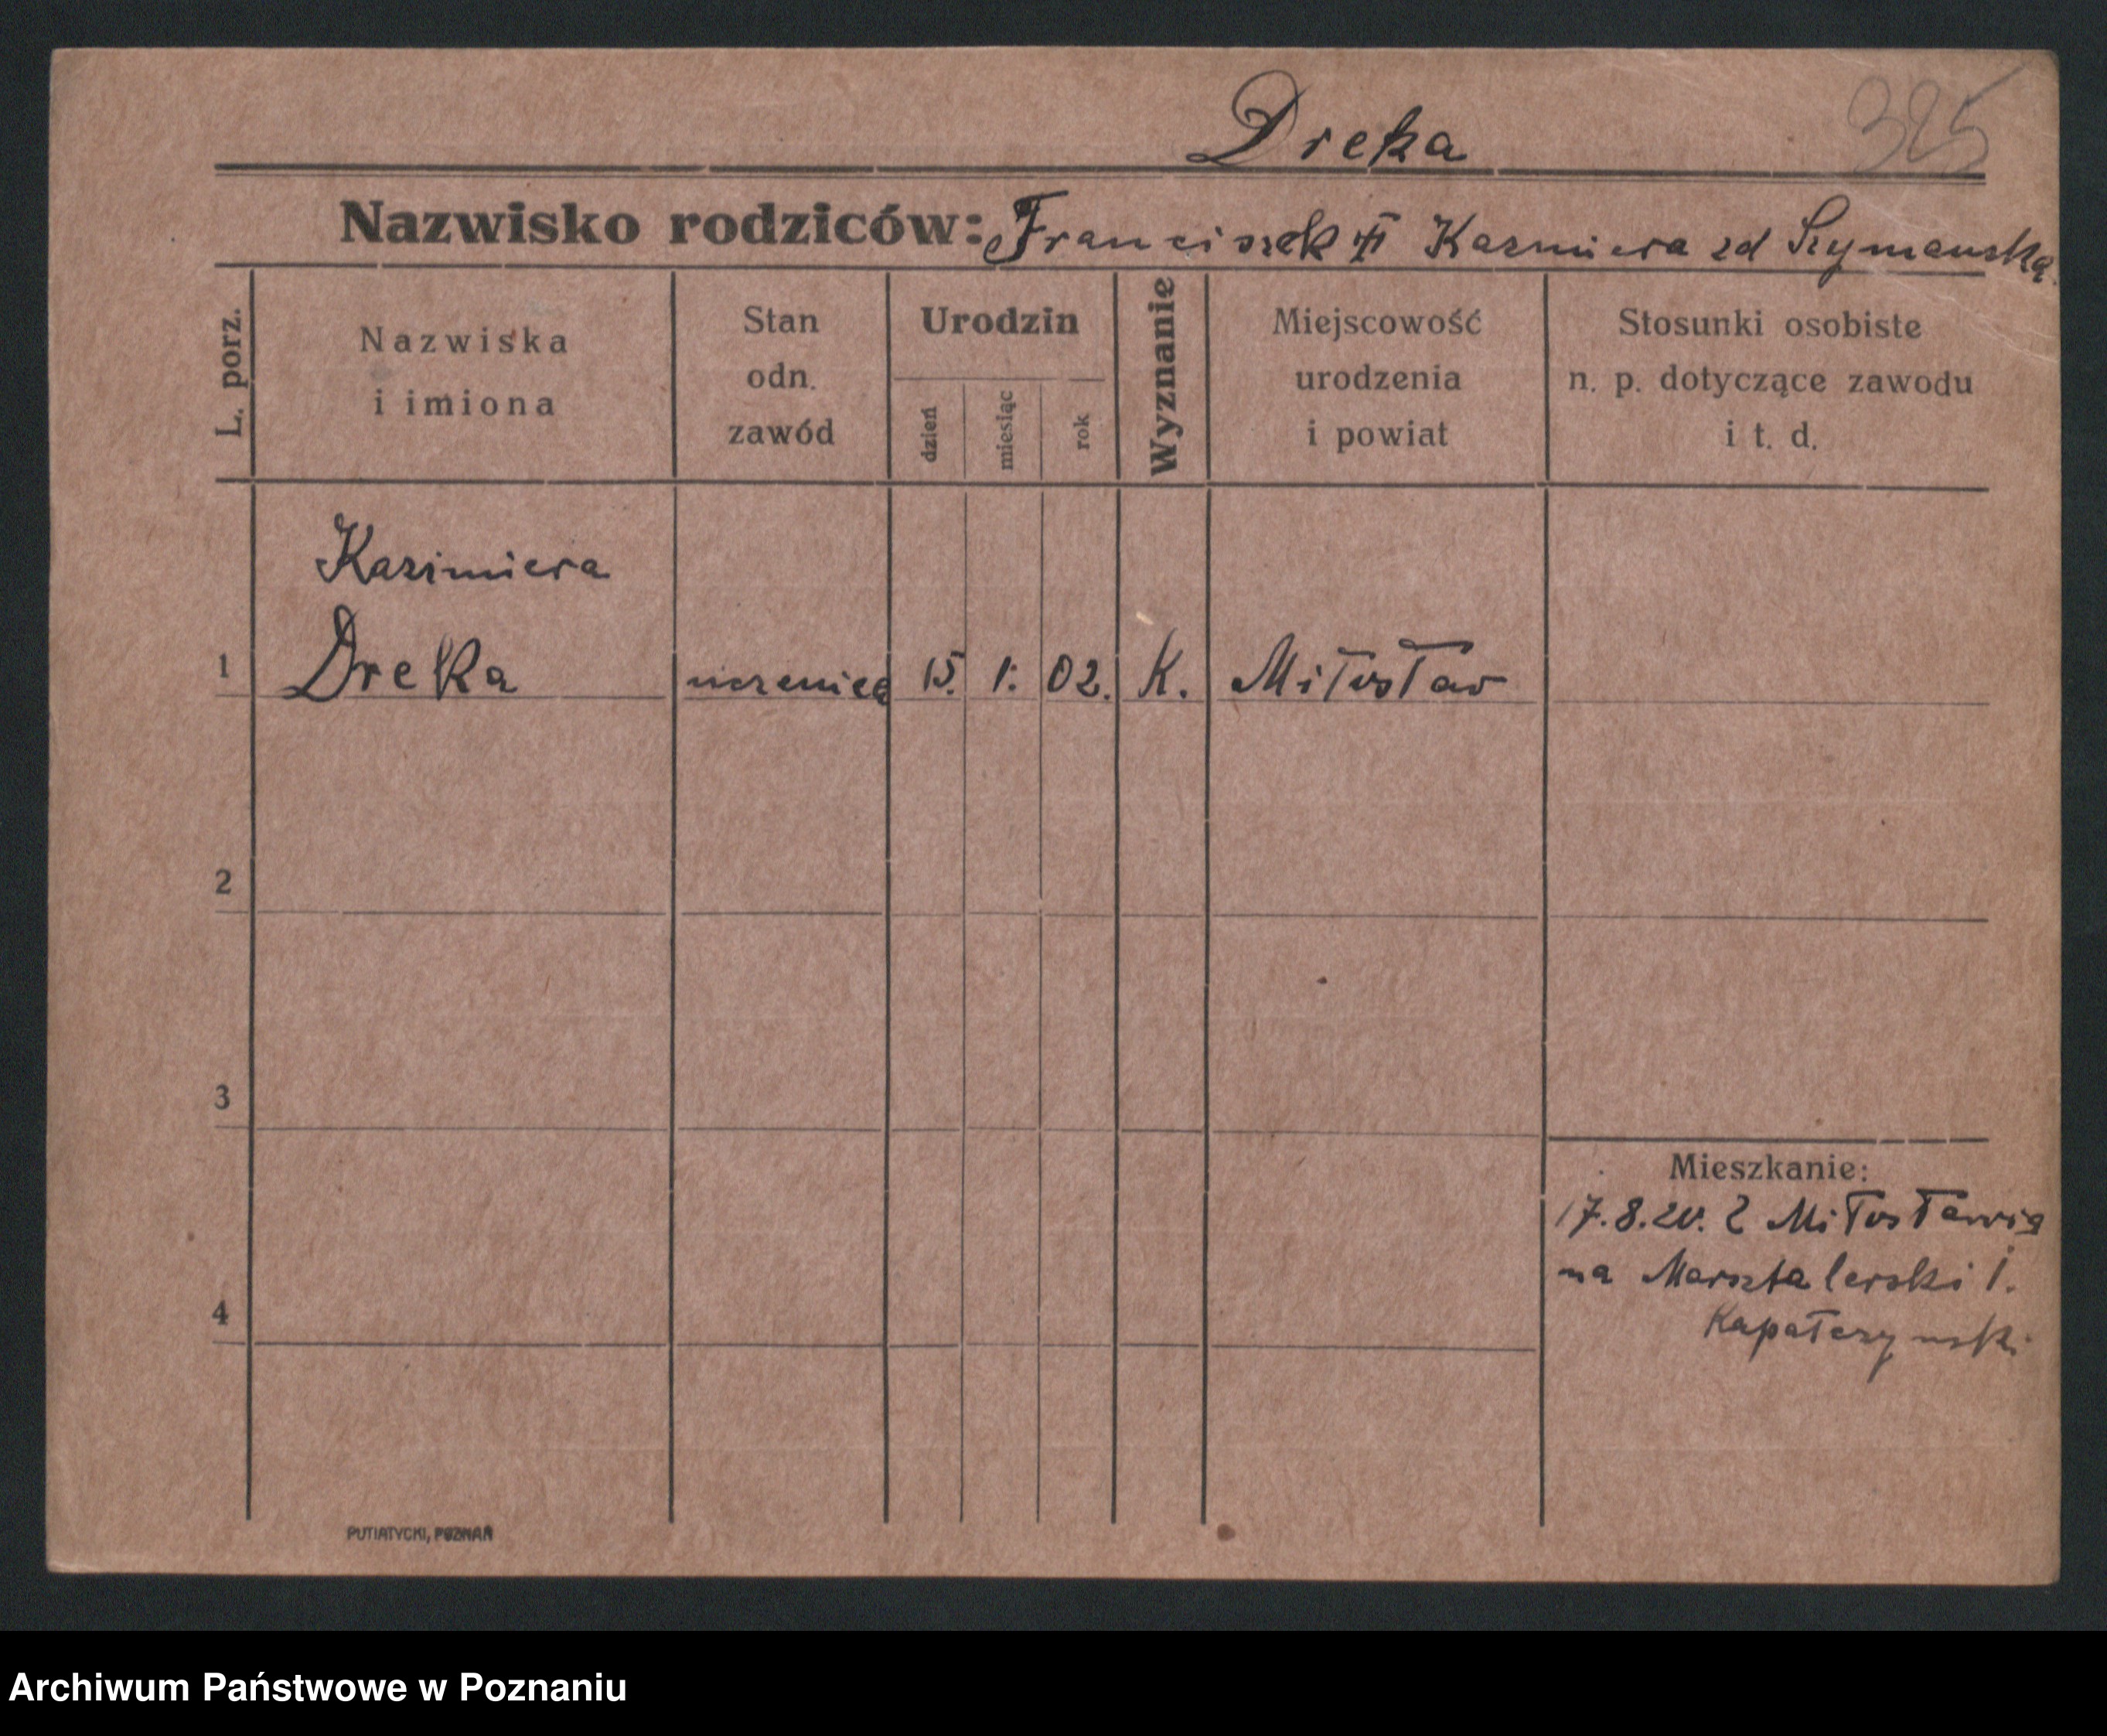 325
Dreka
Nazwisko rodziców: Franciszek i Kazmiera zd Szymanska
L. porz.
Nazwiska
i imiona
Stan
odn.
zawód
Urodzin
dzień
miesiąc
rok
Wyznanie
Miejscowość
urodzenia
i powiat
Stosunki osobiste
n. p. dotyczące zawodu
i t. d.
Kazimiera
1 Dreka uczenica 15. 1. 02. K. Miłosław
2
3
4
Mieszkanie:
17.8.20. Z Miłosławia
na Marsztalerski 1.
Kapałczynski
PUTIATYCKI, POZNAŃ
Archiwum Państwowe w Poznaniu